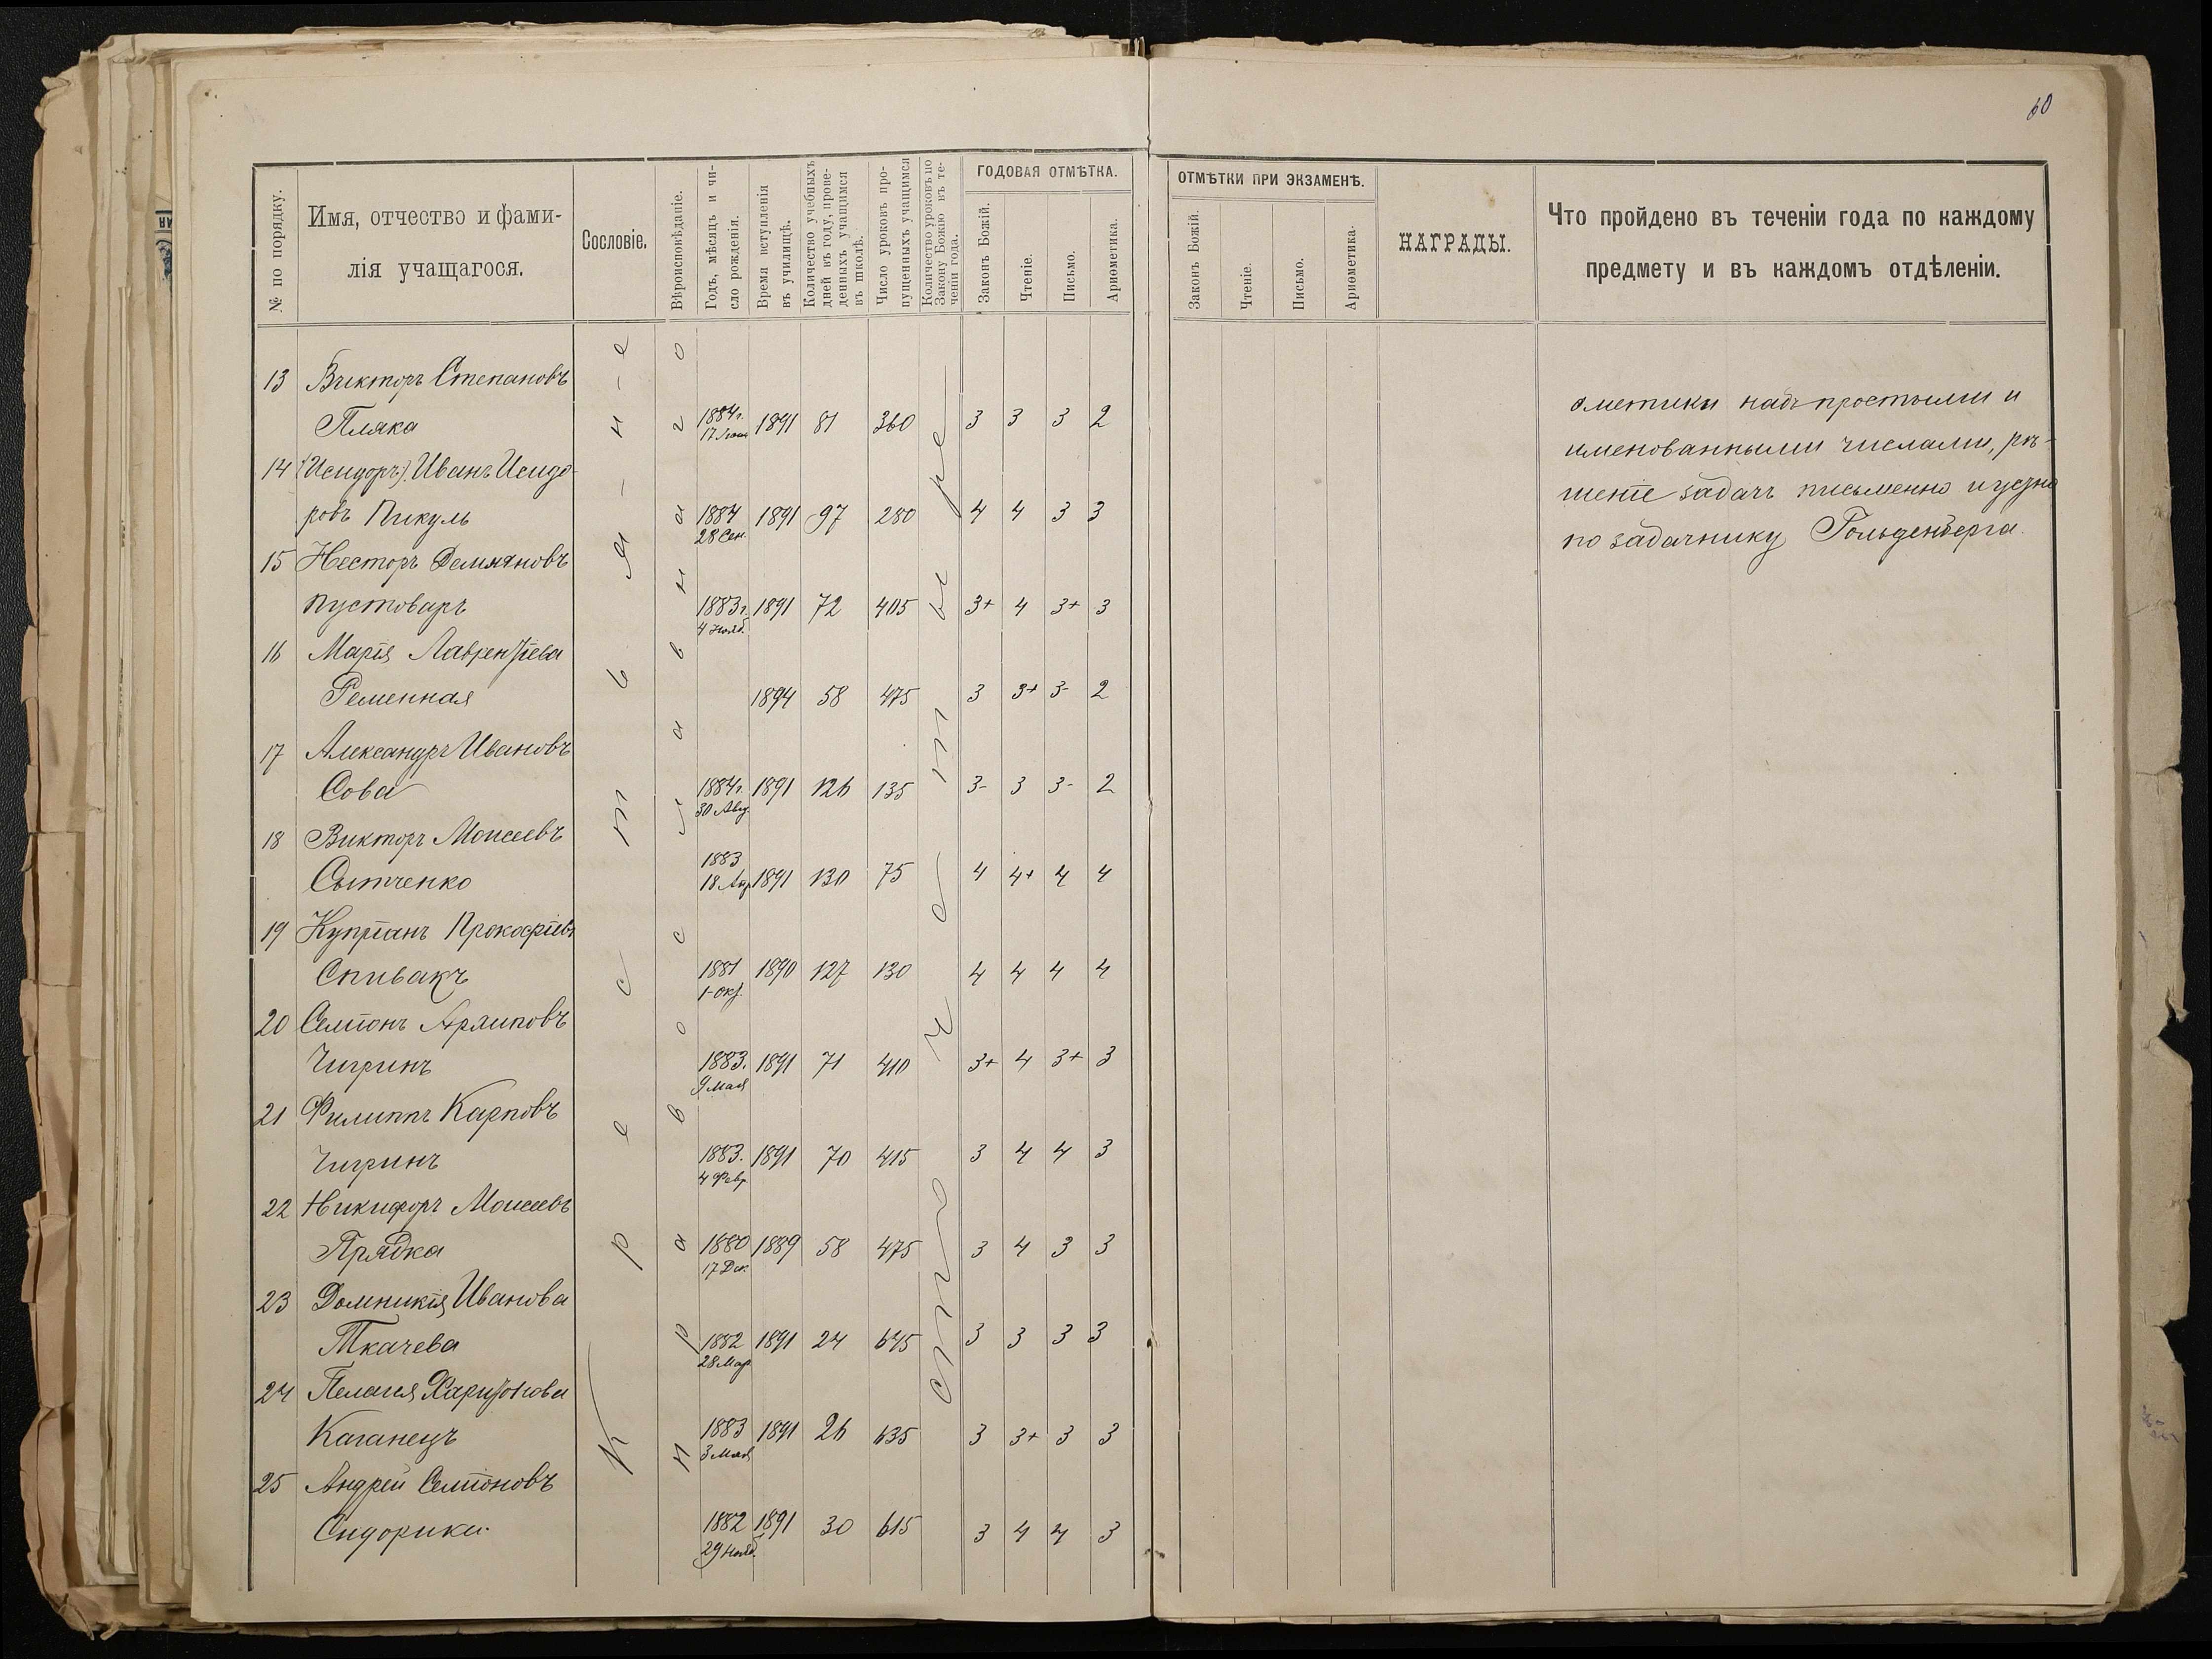 60
№ по порядку.
Имя, отчество и фами-
лія учащагося.
Сословіе.
Вѣроисповѣданіе.
Годъ, мѣсяцъ и чи-
сло рожденія.
Время вступленія
въ училищѣ.
Количество учебныхъ
дней въ году, прове-
денныхъ учащимся
въ школѣ.
Число уроковъ про-
пущенныхъ учащимся
Количество уроковъ по
Закону Божію въ те-
ченіи года.
ГОДОВАЯ ОТМѢТКА.
Законъ Божій.
Чтеніе.
Письмо.
Ариѳметика.
ОТМѢТКИ ПРИ ЭКЗАМЕНѢ.
Законъ Божій.
Чтеніе.
Письмо.
Ариѳметика.
НАГРАДЫ.
Что пройдено въ теченіи года по каждому
предмету и въ каждомъ отдѣленіи.
Крестьян-е
православнаго
сто шестнадцать
13 Викторъ Степановъ
Пляка 1884г. 1891 81 360 3 3 3 2
17 Іюня
14 (Исидоръ). Иванъ Исидо-
ровъ Пикуль 1884 1891 97 280 4 4 3 3
28 Сен.
15 Несторъ Демяновъ
Пустоваръ 1883г. 1891 72 405 3+ 4 3+ 3
4 Нояб.
16 Марія Лаврентіева
Ременная 1894 58 475 3 3+ 3- 2
17 Александръ Ивановъ
Сова 1884г. 1891 126 135 3- 3 3- 2
30 Авг.
18 Викторъ Моисеевъ
1883
Сытченко 18 Апр 1891 130 75 4 4+ 4 4
19 Купріанъ Прокофіевъ
Спивакъ 1881 1890 127 130 4 4 4 4
1-Окт.
20 Семіонъ Архиповъ
Чигринъ 1883. 1891 71 410 3+ 4 3+ 3
9 Мая
21 Филиппъ Карповъ
Чигринъ 1883. 1891 70 415 3 4 4 3
4 Февр
22 Никифоръ Моисеевъ
Прядка 1880 1889 58 475 3 4 3 3
17 Дек.
23 Домникія Иванова
Ткачева 1882 1891 24 645 3 3 3 3
28 Мар
24 Пелагея Харитонова
Каганецъ 1883 1891 26 635 3 3+ 3 3
3 Мая
25 Андрей Семіоновъ
Сидорики 1882 1891 30 615 3 4 4 3
29 Нояб.
ѳметики надъ простыми и
именованными числами, рѣ-
шеніе задачъ письменно и устно
по задачнику Гольденберга.